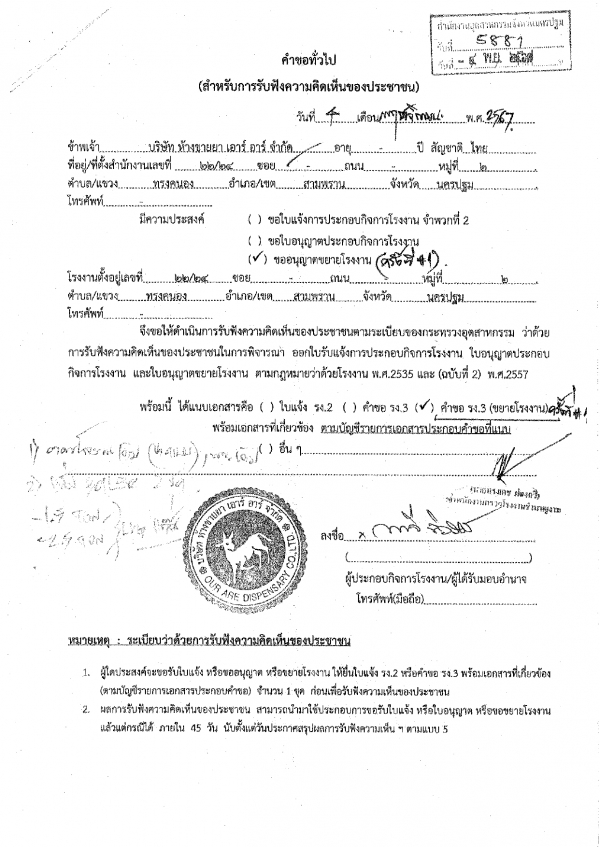 สำนักงานอุตสาหกรรมจังหวัดนครปฐม
รับที่ 5881
วันที่ - ๔ พ.ย. ๒๕๖๗
คำขอทั่วไป
(สำหรับการรับฟังความคิดเห็นของประชาชน)
วันที่ 4 เดือน พฤศจิกายน พ.ศ. 2567
ข้าพเจ้า บริษัท ห้างขายยา เอาร์ อาร์ จำกัด อายุ - ปี สัญชาติ ไทย
ที่อยู่/ที่ตั้งสำนักงานเลขที่ ๒๒/๒๔ ซอย - ถนน - หมู่ที่ ๒
ตำบล/แขวง ทรงคนอง อำเภอ/เขต สามพราน จังหวัด นครปฐม
โทรศัพท์ -
มีความประสงค์ ( ) ขอใบแจ้งการประกอบกิจการโรงงาน จำพวกที่ 2
( ) ขอใบอนุญาตประกอบกิจการโรงงาน
(✓) ขออนุญาตขยายโรงงาน (ครั้งที่ #1)
โรงงานตั้งอยู่เลขที่ ๒๒/๒๔ ซอย - ถนน - หมู่ที่ ๒
ตำบล/แขวง ทรงคนอง อำเภอ/เขต สามพราน จังหวัด นครปฐม
โทรศัพท์ -
จึงขอให้ดำเนินการรับฟังความคิดเห็นของประชาชนตามระเบียบของกระทรวงอุตสาหกรรม ว่าด้วย
การรับฟังความคิดเห็นของประชาชนในการพิจารณา ออกใบรับแจ้งการประกอบกิจการโรงงาน ใบอนุญาตประกอบ
กิจการโรงงาน และใบอนุญาตขยายโรงงาน ตามกฎหมายว่าด้วยโรงงาน พ.ศ.2535 และ (ฉบับที่ 2) พ.ศ.2557
พร้อมนี้ ได้แนบเอกสารคือ ( ) ใบแจ้ง รง.2 ( ) คำขอ รง.3 (✓) คำขอ รง.3 (ขยายโรงงาน) ครั้งที่ #1
พร้อมเอกสารที่เกี่ยวข้อง ตามบัญชีรายการเอกสารประกอบคำขอที่แนบ
( ) อื่น ๆ
บริษัท ห้างขายยา เอาร์ อาร์ จำกัด
OUR ARE DISPENSARY CO.,LTD.
ลงชื่อ x
( )
ผู้ประกอบกิจการโรงงาน/ผู้ได้รับมอบอำนาจ
โทรศัพท์(มือถือ)
หมายเหตุ : ระเบียบว่าด้วยการรับฟังความคิดเห็นของประชาชน
1. ผู้ใดประสงค์จะขอรับใบแจ้ง หรือขออนุญาต หรือขยายโรงงาน ให้ยื่นใบแจ้ง รง.2 หรือคำขอ รง.3 พร้อมเอกสารที่เกี่ยวข้อง
(ตามบัญชีรายการเอกสารประกอบคำขอ) จำนวน 1 ชุด ก่อนเพื่อรับฟังความเห็นของประชาชน
2. ผลการรับฟังความคิดเห็นของประชาชน สามารถนำมาใช้ประกอบการขอรับใบแจ้ง หรือใบอนุญาต หรือขอขยายโรงงาน
แล้วแต่กรณีได้ ภายใน 45 วัน นับตั้งแต่วันประกาศสรุปผลการรับฟังความเห็น ฯ ตามแบบ 5